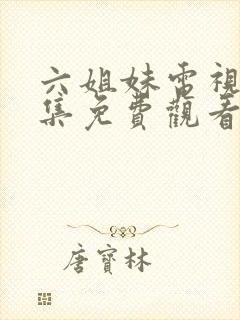 六姐妹電視
集免費觀看
唐寶林